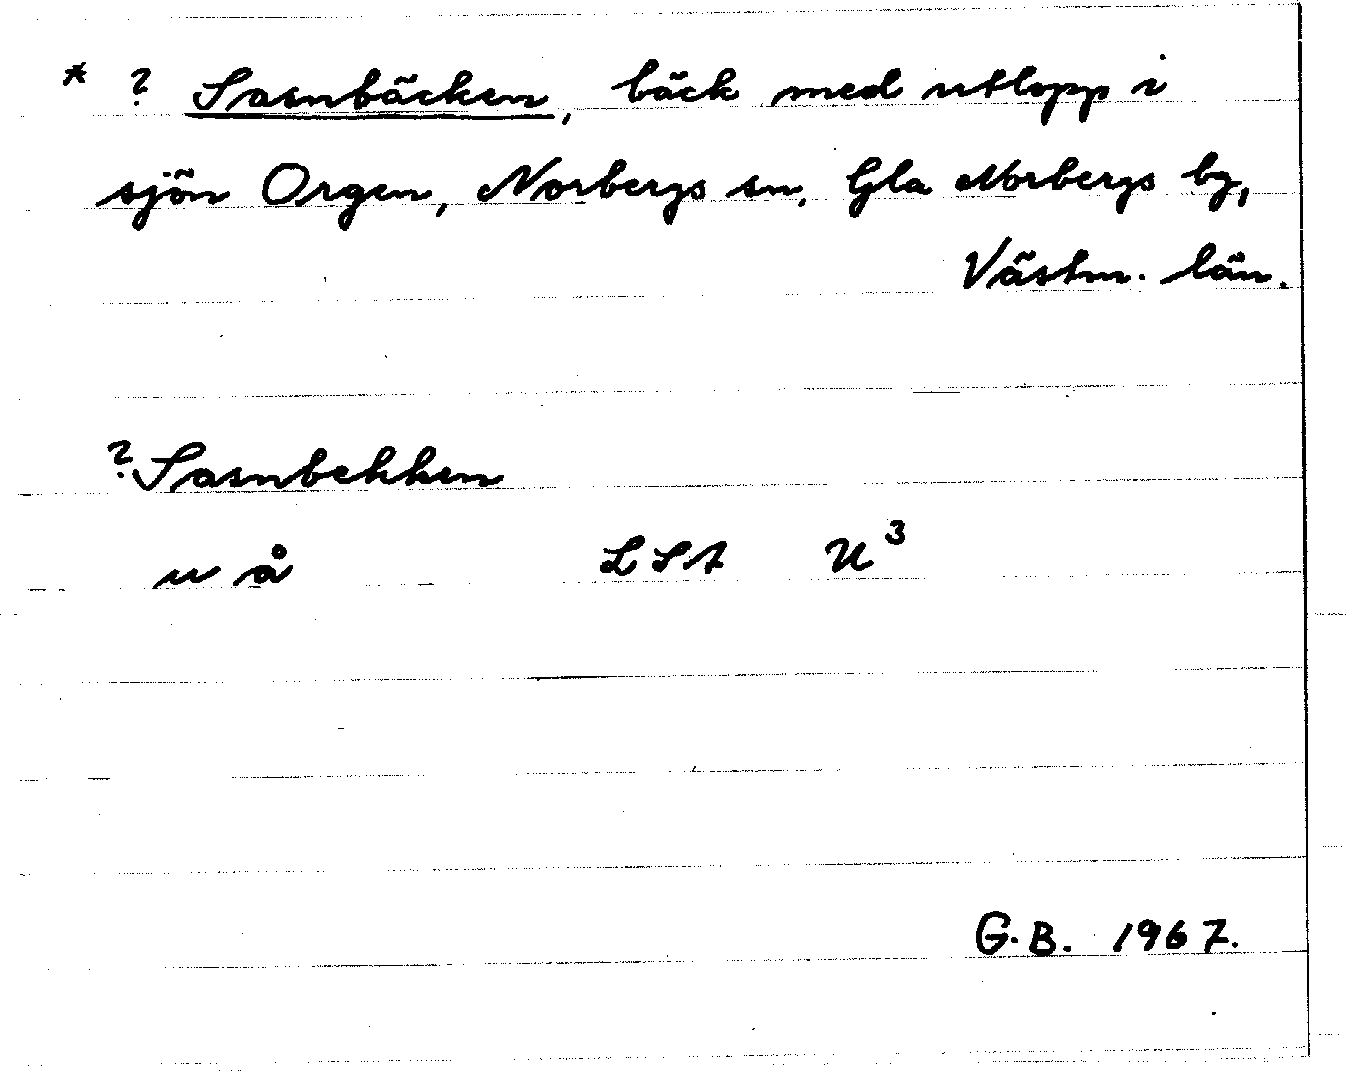 * ? Sasnbäcken, bäck med utlopp i
sjön Orgen, Norbergs sn, Gla Norbergs by,
Västm. län.
? Sasnbekken
u å LSA U³
G.B. 1967.